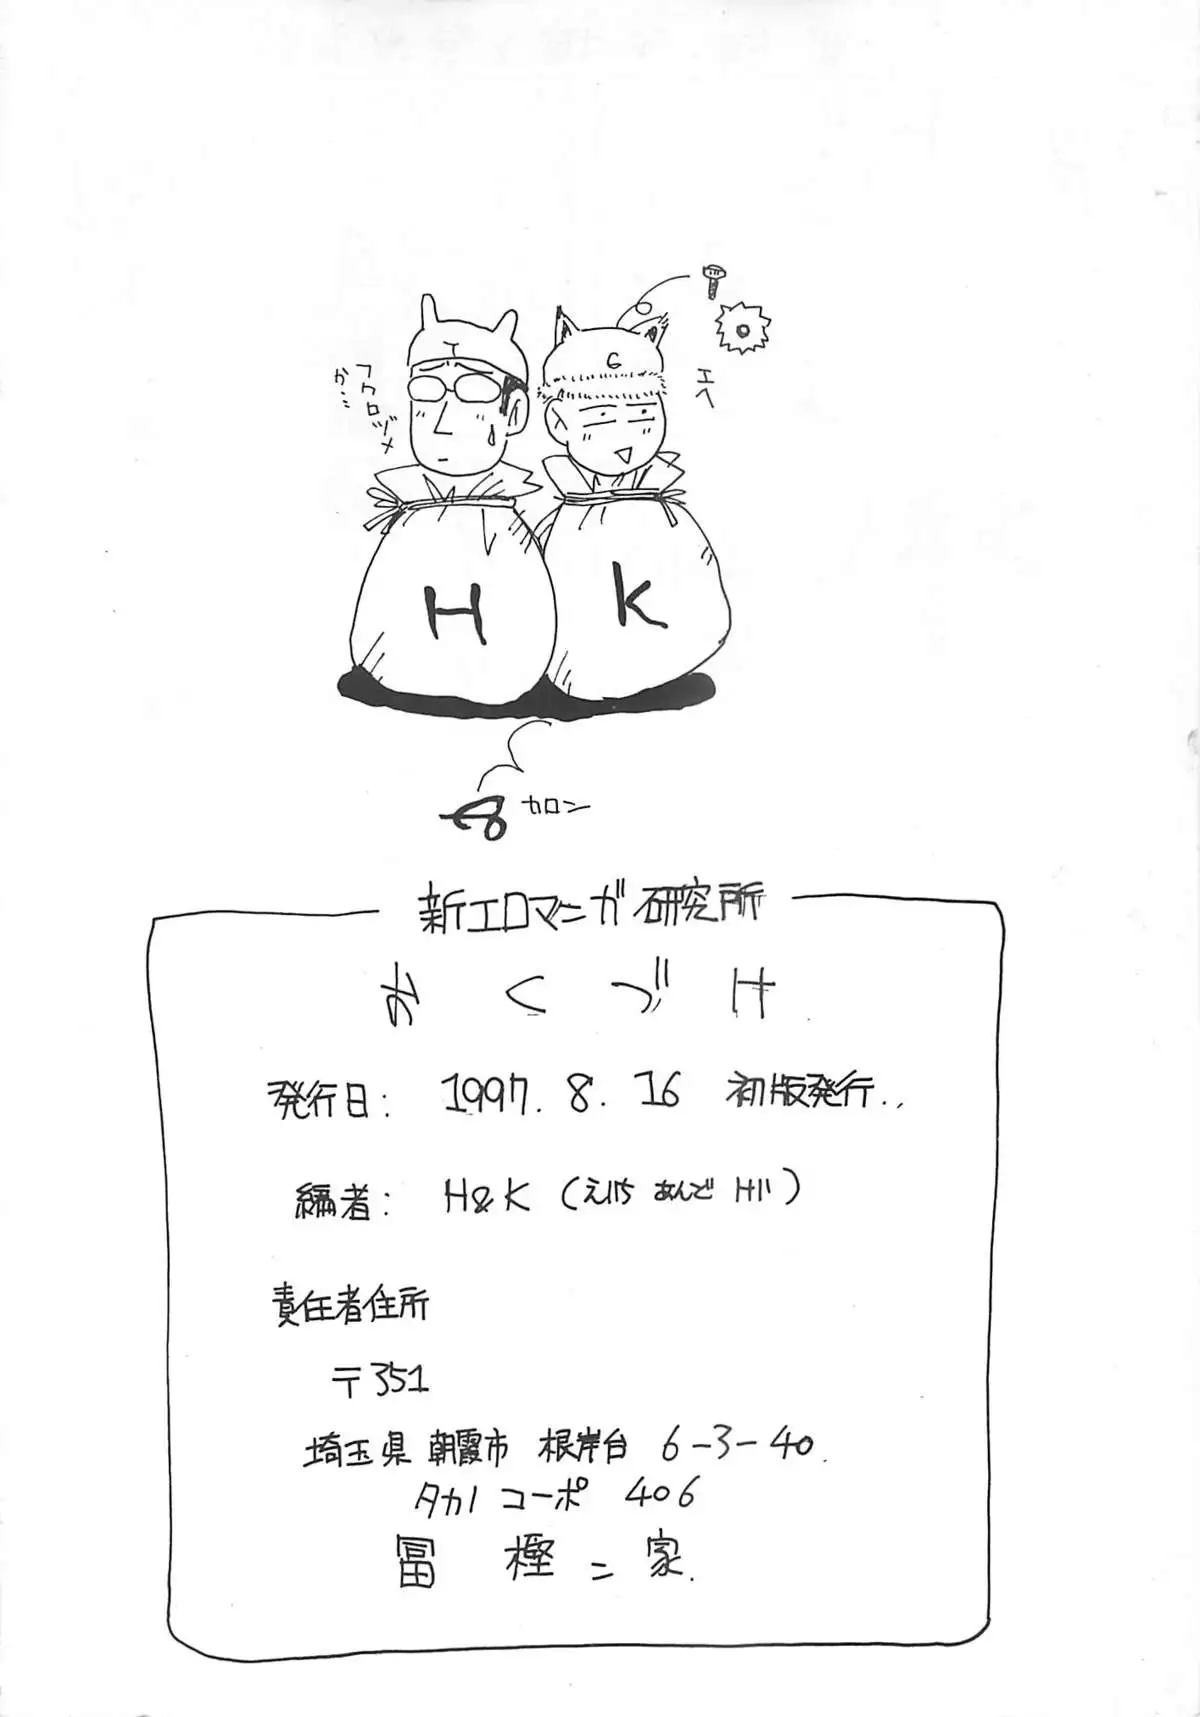 T
G
フクロヅメ
か…
エヘ
H
K
カロン
新エロマンガ研究所
おくづけ
発行日: 1997. 8. 16 初版発行..
編者: H&K (えいち あんど けい)
責任者住所
〒351
埼玉県 朝霞市 根岸台 6-3-40.
タカノ コーポ 406
冨樫ン家.